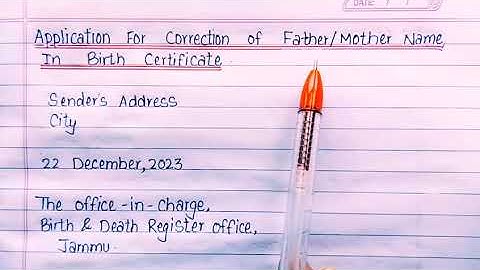 DATE / /
Application For Correction of Father/Mother Name
In Birth Certificate.
Sender's Address
City
22 December, 2023
The office-in-Charge,
Birth & Death Register office,
Jammu.